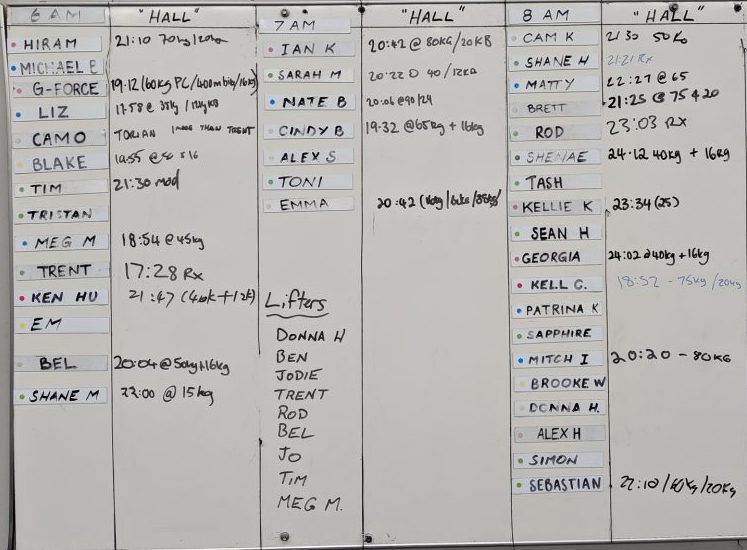 6 AM "HALL"
HIRAM 21:10 70kg/20kg
MICHAEL B
G-FORCE 19:12 (60kg PC/400m bike/16kg)
LIZ 17:58 @ 35kg / 12kg KB
CAMO TORIAN 1 MORE THAN TRENT
BLAKE @ 50 & 16
TIM 21:30 mod
TRISTAN
MEG M 18:54 @ 45kg
TRENT 17:28 Rx
KEN HU 21:47 (40k + 12k)
EM
BEL 20:04 @ 50kg + 16kg
SHANE M 22:00 @ 15kg
7 AM "HALL"
IAN K 20:42 @ 80KG/20KB
SARAH M 20:22 @ 40/12KG
NATE B 20:06 @ 90/24
CINDY B 19:32 @ 65kg + 16kg
ALEX S
TONI
EMMA 20:42
Lifters
DONNA H
BEN
JODIE
TRENT
ROD
BEL
JO
TIM
MEG M.
8 AM "HALL"
CAM K 21 30
SHANE H 21:21 Rx
MATTY 22:27 @ 65
BRETT 21:25 @ 75 & 20
ROD 23:03 RX
SHENAE 24:12 40kg + 16kg
TASH
KELLIE K 23:34 (25)
SEAN H
GEORGIA 24:02 @ 40kg + 16kg
KELL C. 18:52 - 75kg / 20kg
PATRINA K
SAPPHIRE
MITCH I 20:20 - 80KG
BROOKE W
DONNA H.
ALEX H
SIMON
SEBASTIAN 22:10 / 60kg / 20kg